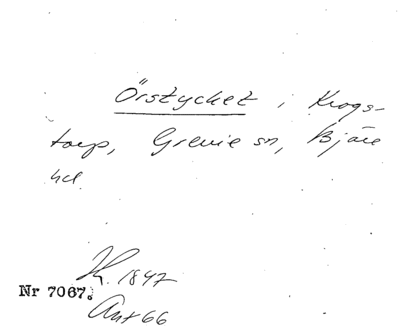 Örstycket i Krogs-
torp, Grevie sn, Bjäre
hd.
K. 1847
Nr 7067.
Ant 66